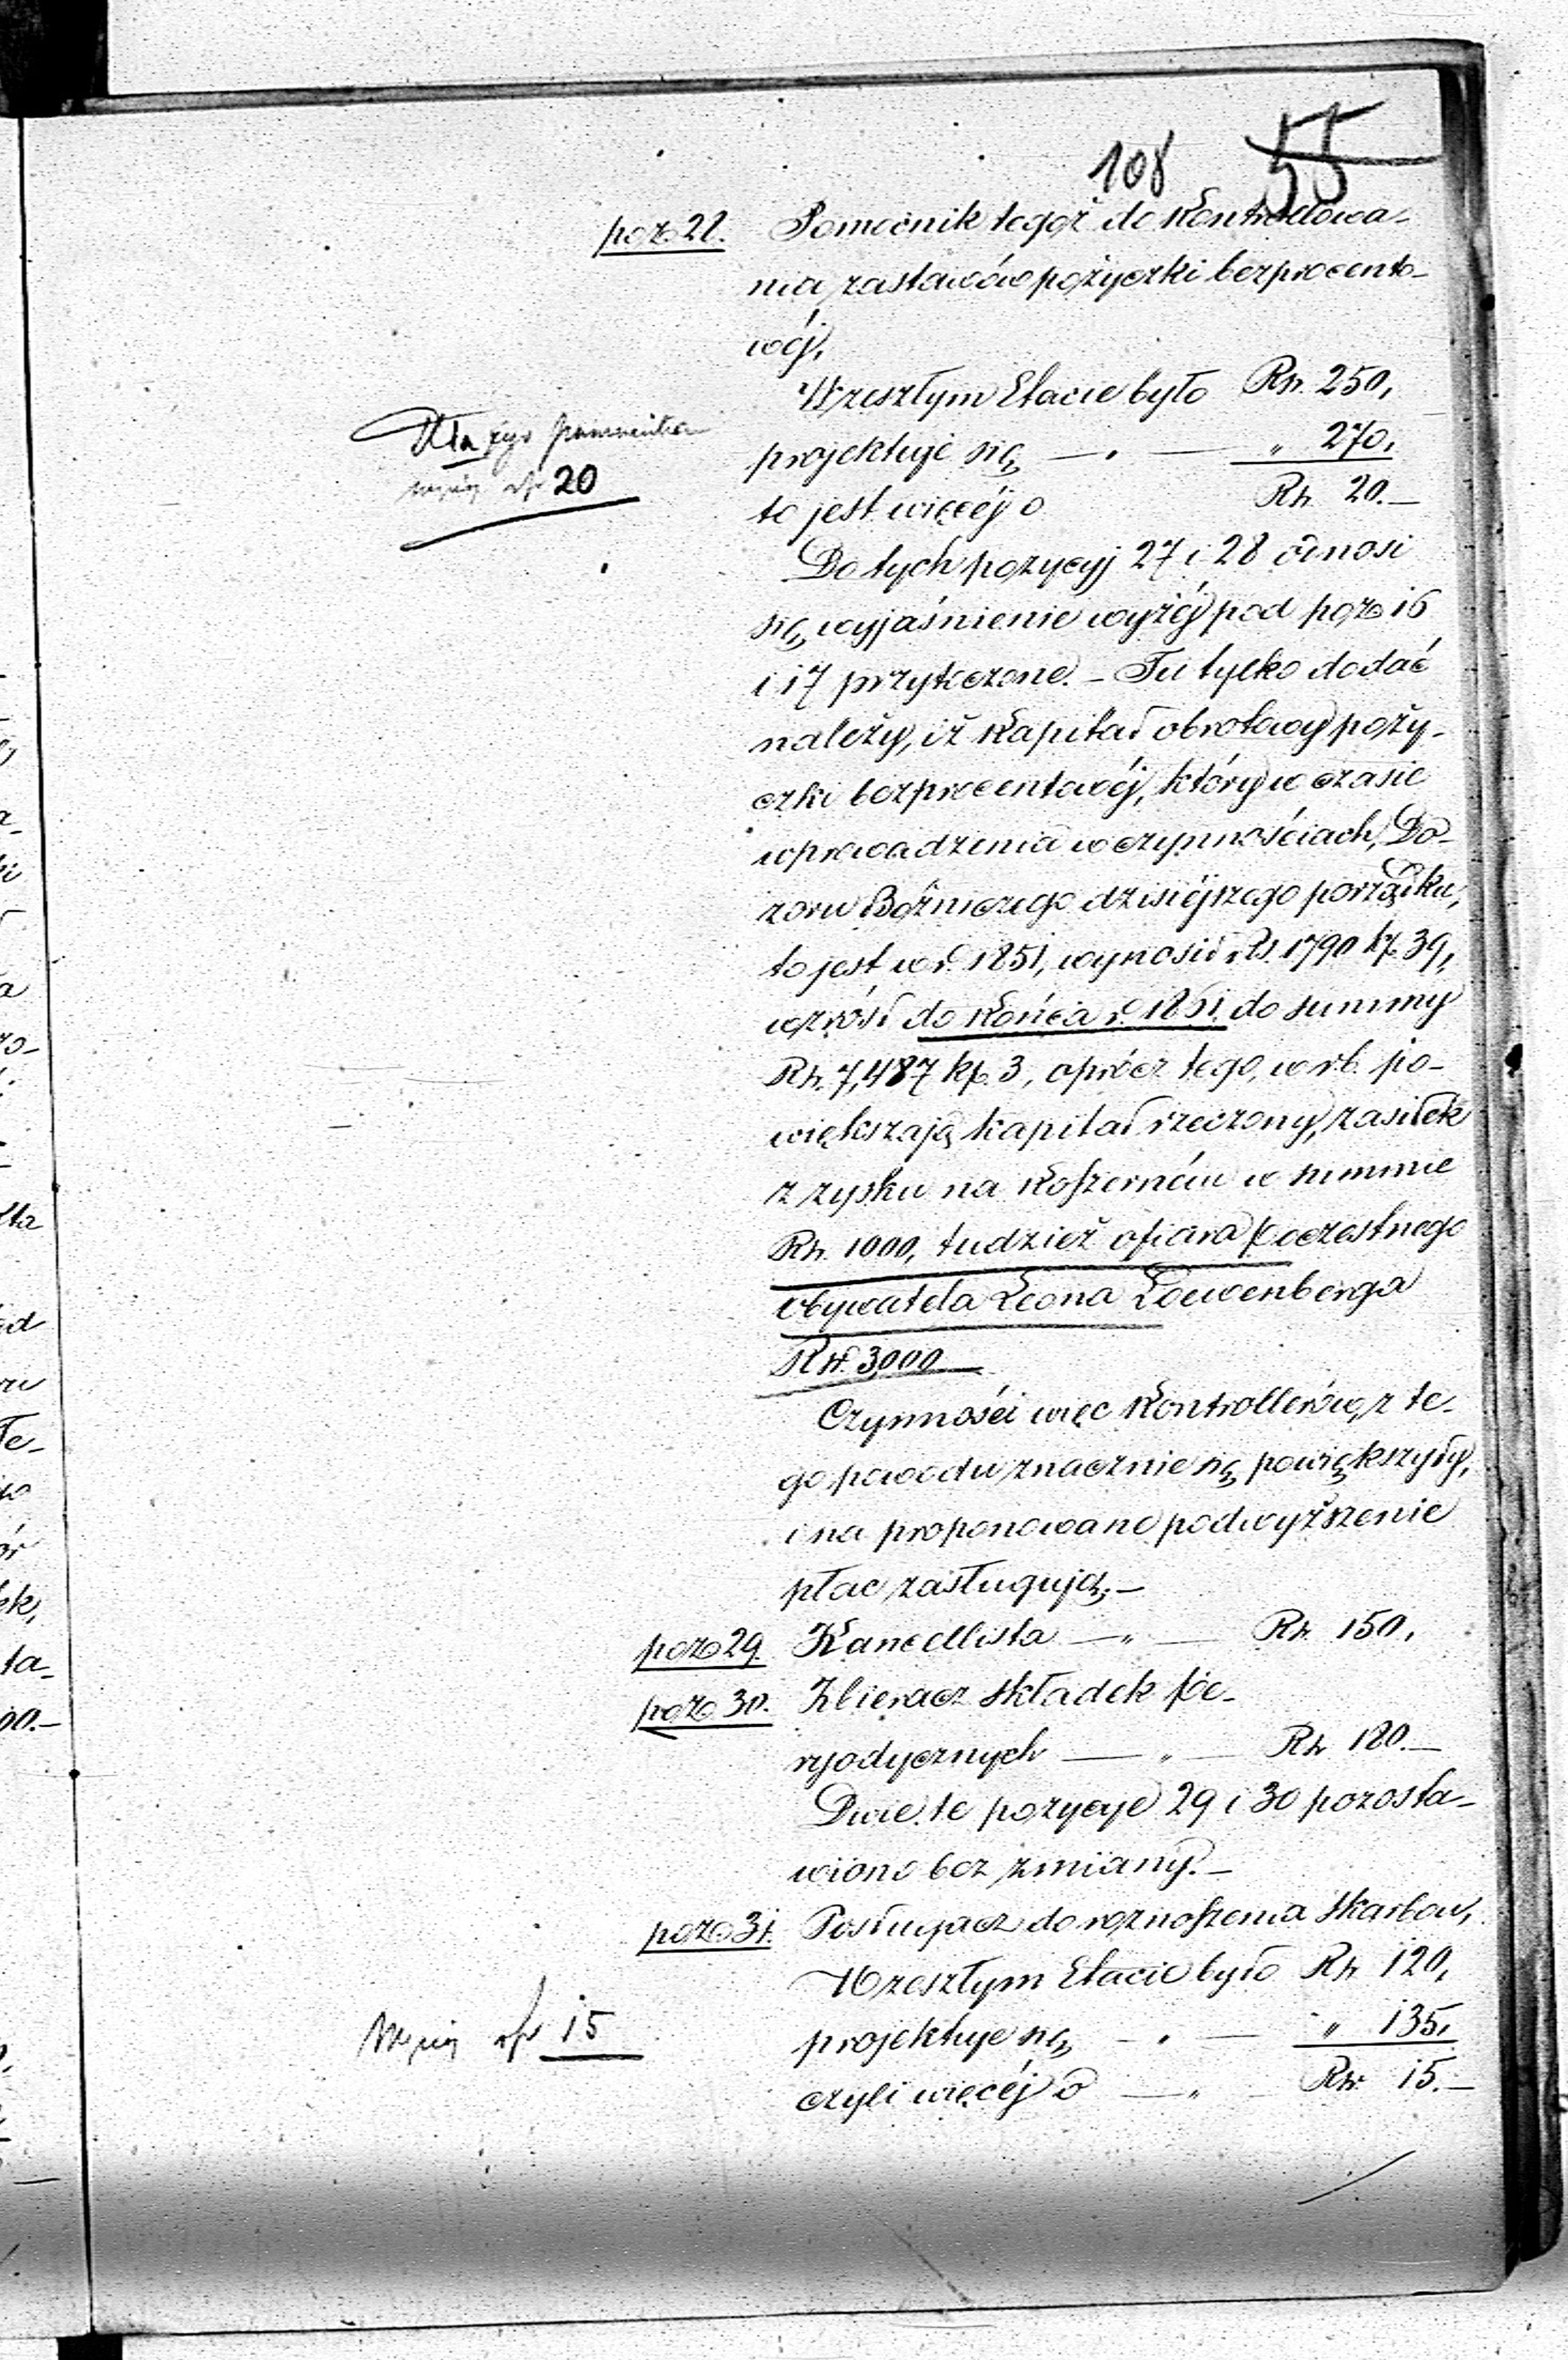 108 55
poz 28. Pomocnik tegoż do kontrollowa-
nia zastawów pożyczki bezprocento-
wéj,
W zeszłym Etacie było Rs. 250,
projektuje się — " — " 270,
to jest więcéj o Rs. 20.—
Dla jego pomocnika
więcéj rs 20
Do tych pozycyj 27 i 28 odnosi
się wyjaśnienie wyżéj pod poz 16
i 17 przytoczone. – Tu tylko dodać
należy, iż kapitał obrotowy poży-
czki bezprocentowéj, który w czasie
wprowadzenia w czynnościach Do-
zoru Bóżniczego dzisiéjszego porządku,
to jest w r. 1851, wynosił Rs. 1790 kp. 39,
wzrósł do końca r. 1861. do summy
Rs. 7,487 kp. 3, oprócz tego, w r.b. po-
większają kapitał rzeczony, zasiłek
z zysku na koszerném w summie
Rs. 1000, tudzież ofiara poczestnego
obywatela Leona Loewenberga
Rs. 3000—
Czynności więc kontrollerów, z te-
go powodu znacznie się powiększyły,
i na proponowane podwyższenie
płac zasługują.—
poz 29. Kancellista — " — Rs. 150.
poz 30. Zbieracz składek pe-
ryodycznych — " — Rs 180.—
Dwie te pozycye 29 i 30 pozosta-
wiono bez zmiany.—
poz. 31. Posługacz do roznoszenia skarbon,
W zeszłym Etacie było Rs 120,
projektuje się — " — " 135,
czyli więcéj o — " — Rs. 15.—
Więcéj rs 15